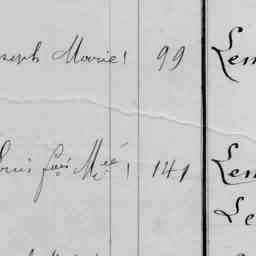 Joseph Marie 99 Lem
Louis fçois Mie 141 Lem
Le